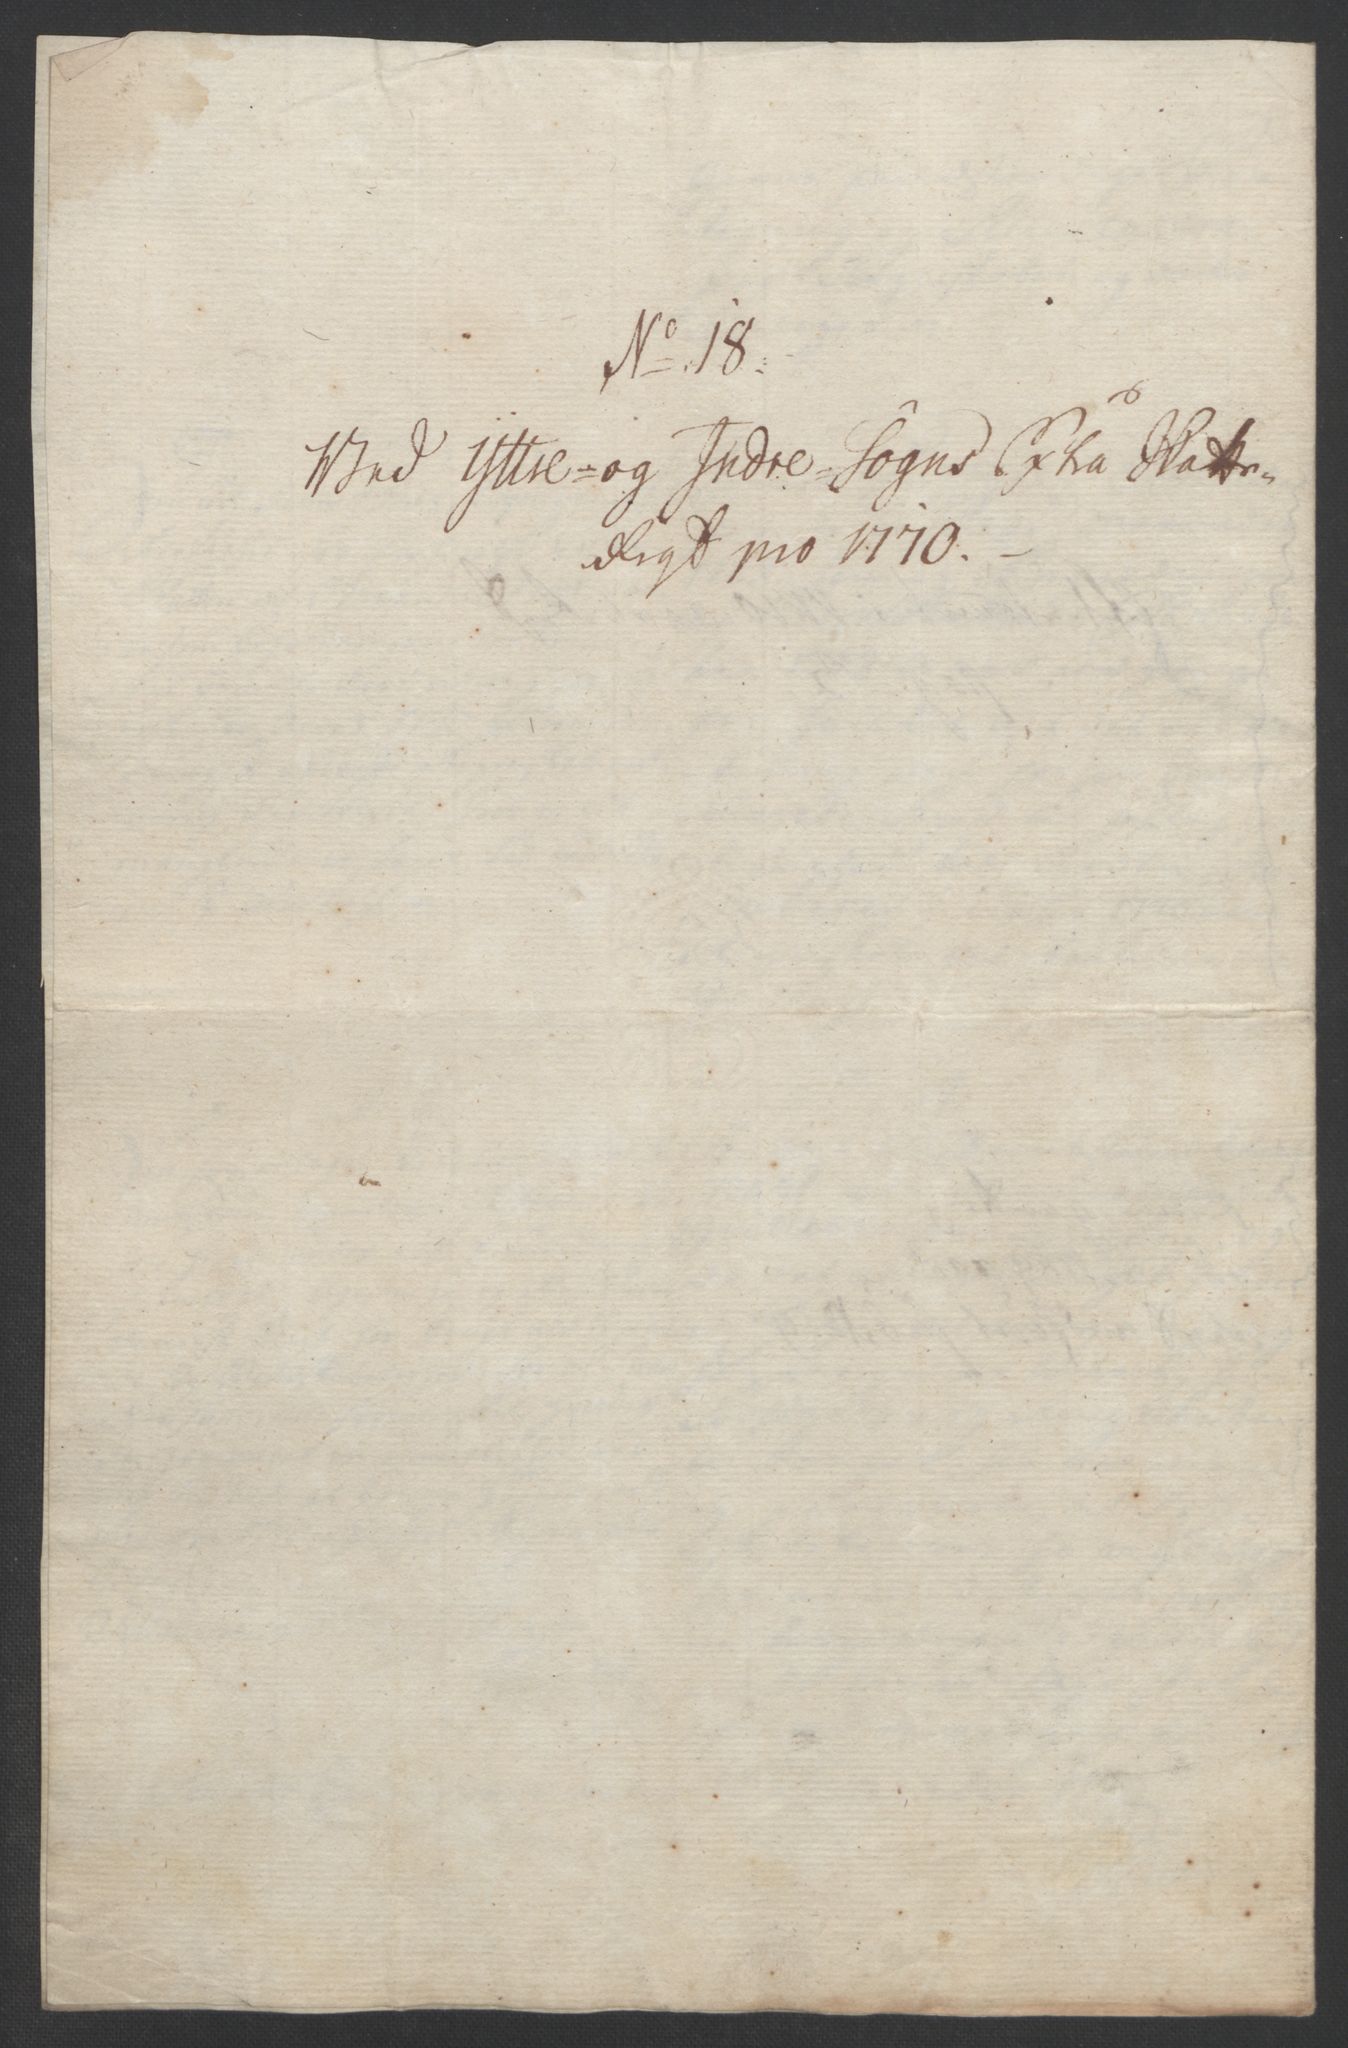 No. 18.
Ved Yttre- og Indre-Sogns Extra Skatte-
Regsk pro 1770.